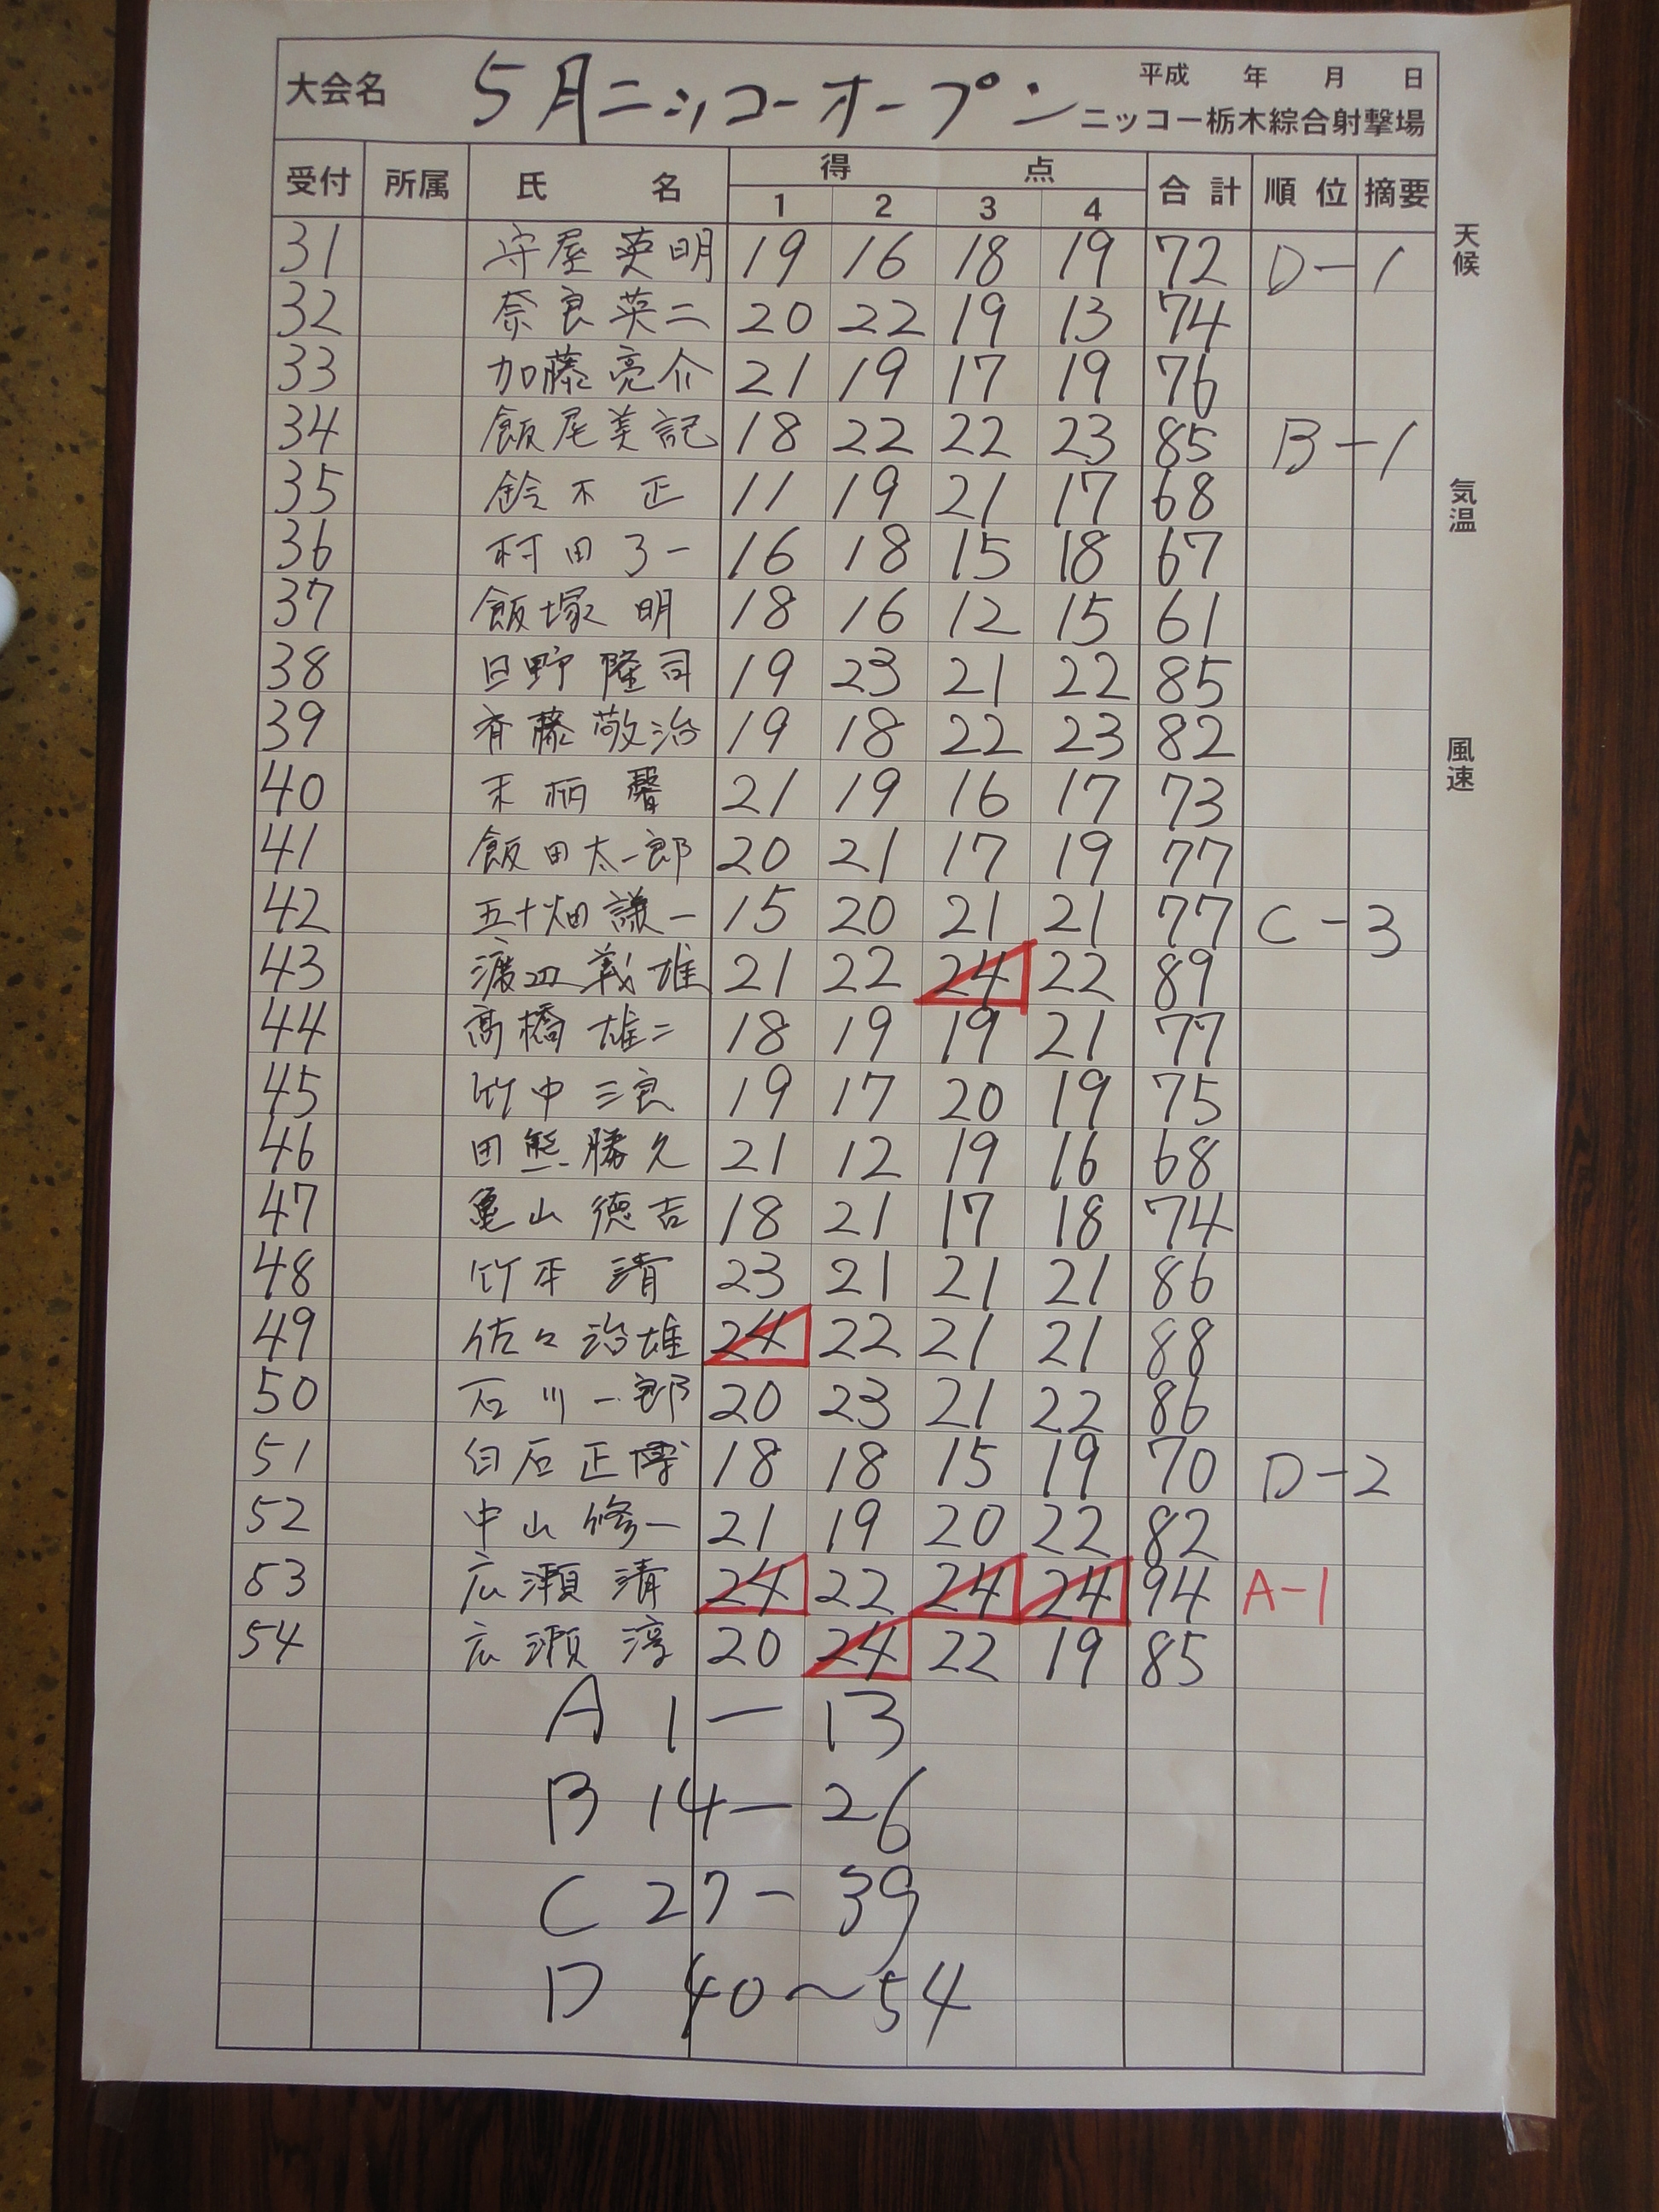 大会名 5月ニッコーオープン 平成 年 月 日
ニッコー栃木綜合射撃場
受付 所属 氏 名 得 点 合計 順位 摘要
1 2 3 4
31 守屋英明 19 16 18 19 72 D-1
32 奈良英二 20 22 19 13 74
33 加藤亮介 21 19 17 19 76
34 飯尾美記 18 22 22 23 85 B-1
35 鈴木正 11 19 21 17 68
36 村田了一 16 18 15 18 67
37 飯塚明 18 16 12 15 61
38 日野隆司 19 23 21 22 85
39 斉藤敬治 19 18 22 23 82
40 末柄馨 21 19 16 17 73
41 飯田太一郎 20 21 17 19 77
42 五十畑謙一 15 20 21 21 77 C-3
43 渡辺義雄 21 22 24 22 89
44 高橋雄二 18 19 19 21 77
45 竹中三良 19 17 20 19 75
46 田熊勝久 21 12 19 16 68
47 亀山徳吉 18 21 17 18 74
48 竹本清 23 21 21 21 86
49 佐々治雄 24 22 21 21 88
50 石川一郎 20 23 21 22 86
51 白石正博 18 18 15 19 70 D-2
52 中山修一 21 19 20 22 82
53 広瀬清 24 22 24 24 94 A-1
54 広瀬淳 20 24 22 19 85
A 1-13
B 14-26
C 27-39
D 40~54
天候
気温
風速